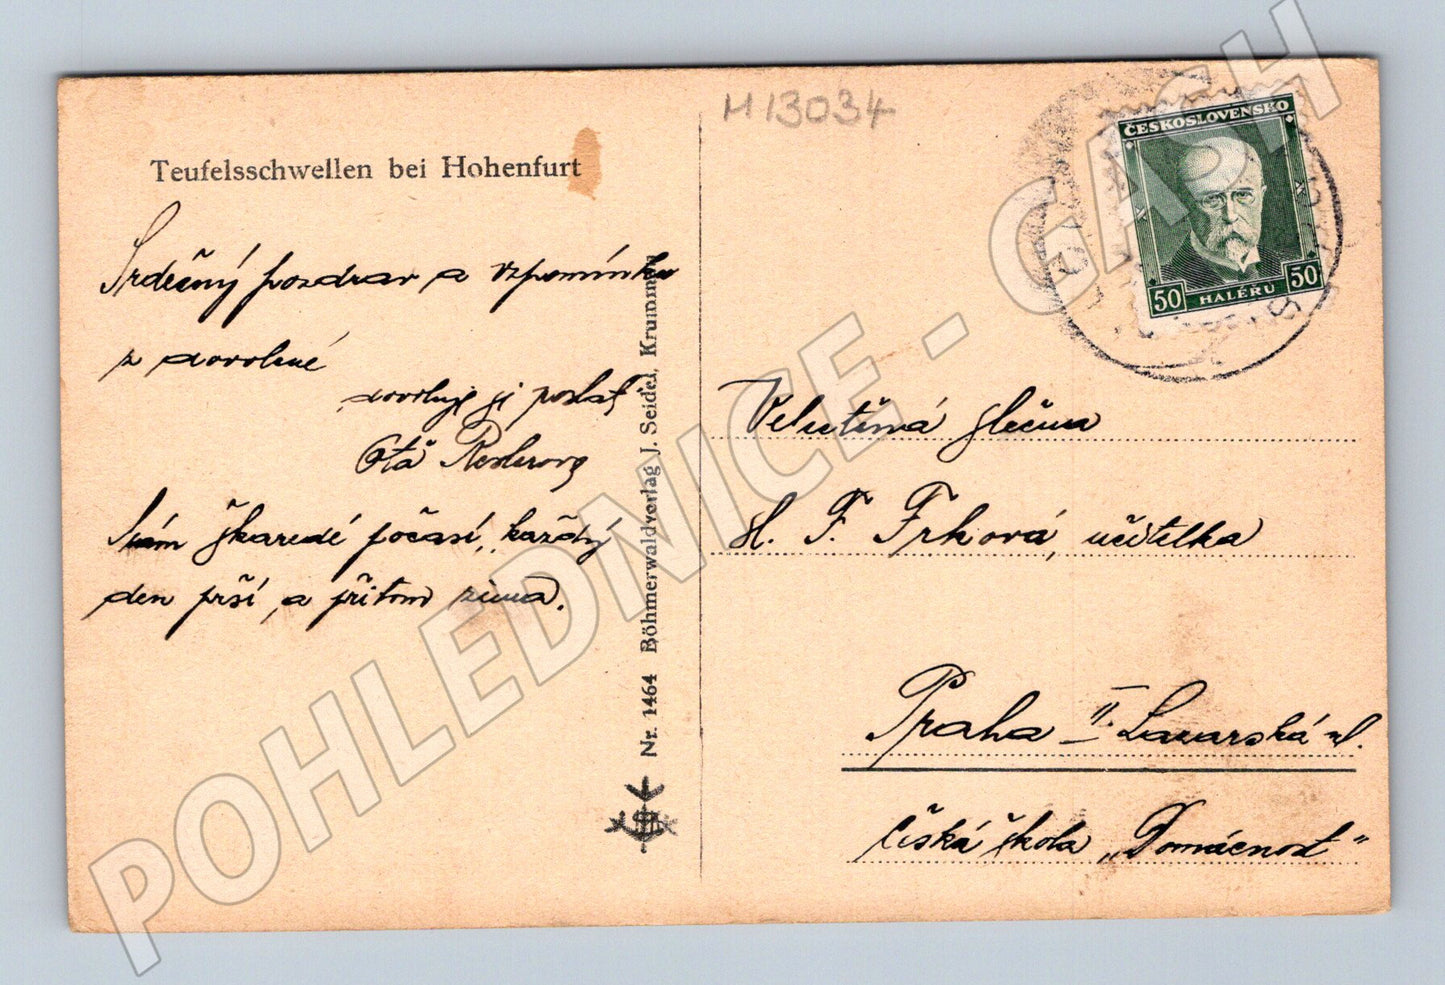 H 13034
Teufelsschwellen bei Hohenfurt
Srdečný pozdrav a vzpomínku
z dovolené
dovoluje si poslat
Otta
Mám škaredé počasí, každý
den prší, a přitom zima.
Nr. 1464 Böhmerwaldverlag J. Seidel, Krummau
ČESKOSLOVENSKO
50 HALÉRU 50
Velectěná slečna
sl. F. Frková, učitelka
Praha II. Lazarská ul.
Česká škola „Domácnost"
POHLEDNICE - GASH